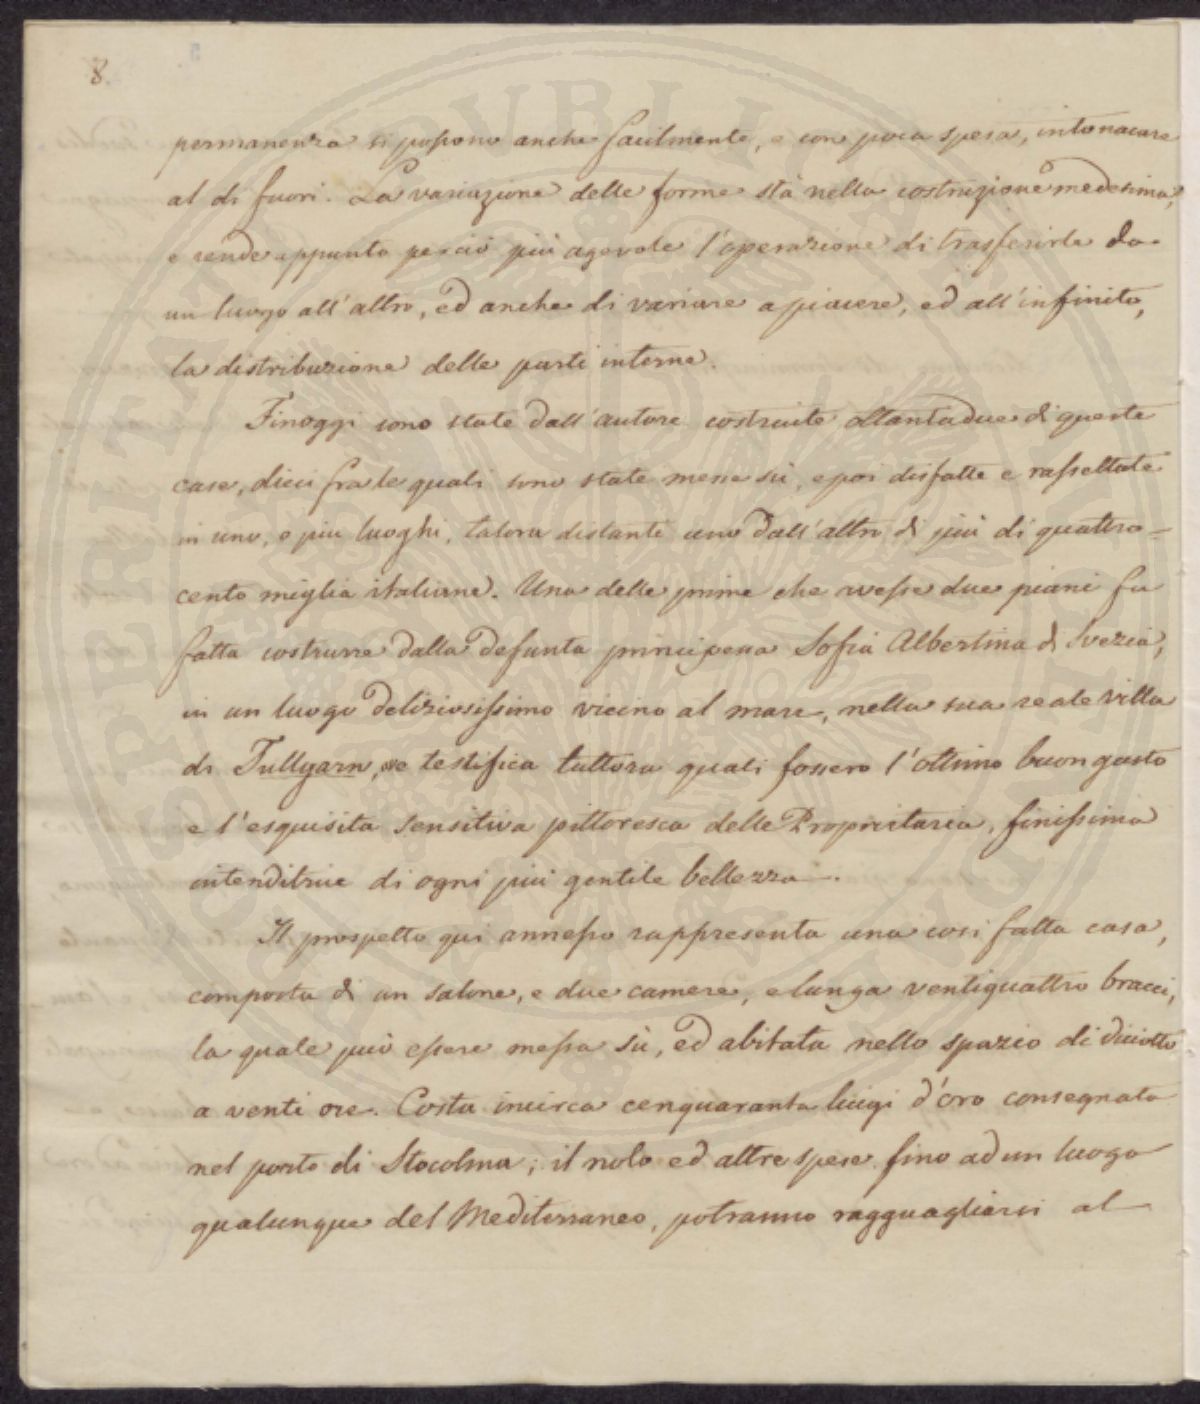 8.
permanenza si possono anche facilmente, e con poca spesa, intonacare
al di fuori. La variazione delle forme stà nella costruzione medesima,
e rende appunto perciò più agevole l'operazione di trasferirle da
un luogo all'altro, ed anche di variare a piacere, ed all'infinito,
la distribuzione delle parti interne.
Finoggi sono state dall'autore costruite ottantadue di queste
case, dieci fra le quali sono state messe sù, e poi disfatte e rassettate
in uno, o più luoghi, talora distanti uno dall'altro di più di quattro-
cento miglia italiane. Una delle prime che avesse due piani fu
fatta costrurre dalla defunta principessa Sofia Albertina di Svezia,
in un luogo deliziosissimo vicino al mare, nella sua reale villa
di Tullgarn, e testifica tuttora quali fossero l'ottimo buon gusto
e l'esquisita sensitiva pittoresca della Proprietaria, finissima
intenditrice di ogni più gentile bellezza.
Il prospetto qui annesso rappresenta una così fatta casa,
composta di un salone, e due camere, e lunga ventiquattro bracci,
la quale può essere messa sù, ed abitata nello spazio di diciotto
a venti ore. Costa incirca cenquaranta luigi d'oro consegnata
nel porto di Stocolma; il nolo ed altre spese fino ad un luogo
qualunque del Mediterraneo, potranno ragguagliarsi al
SVBLICAE VTILITATI PROSPERITATI